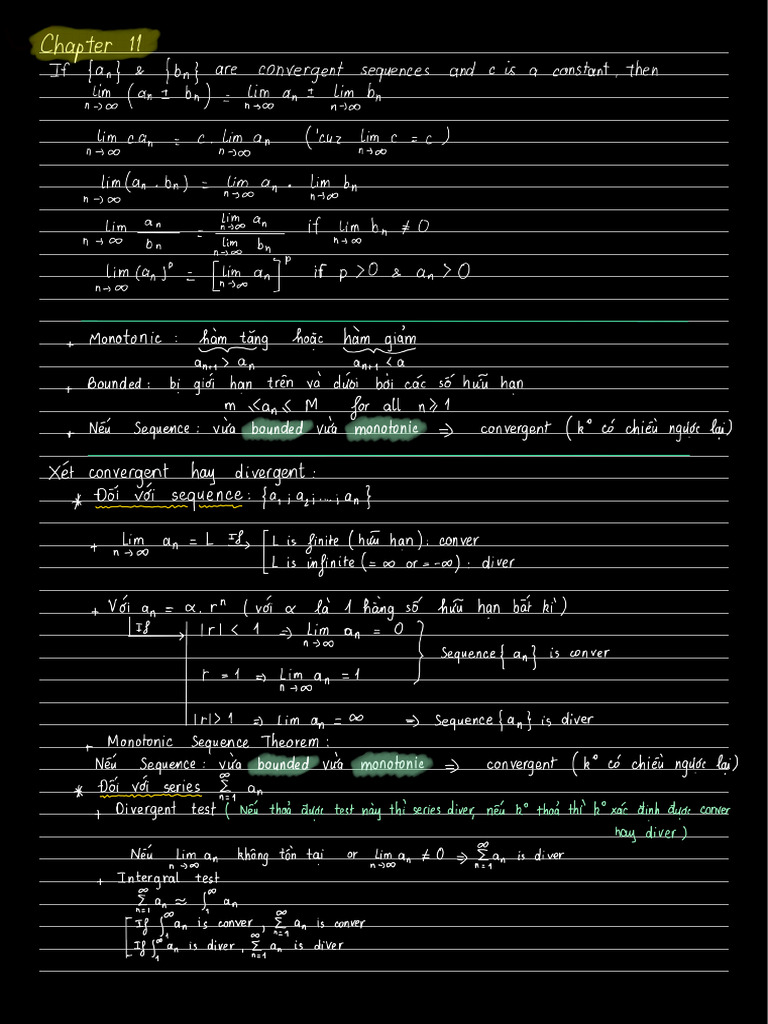 Chapter 11
If {aₙ} & {bₙ} are convergent sequences and c is a constant, then
lim n→∞ (aₙ ± bₙ) = lim n→∞ aₙ ± lim n→∞ bₙ
lim n→∞ caₙ = c. lim n→∞ aₙ ('cuz lim n→∞ c = c)
lim n→∞ (aₙ . bₙ) = lim n→∞ aₙ . lim n→∞ bₙ
lim n→∞ aₙ/bₙ = lim n→∞ aₙ / lim n→∞ bₙ if lim n→∞ bₙ ≠ 0
lim n→∞ (aₙ)ᵖ = [lim n→∞ aₙ]ᵖ if p > 0 & aₙ > 0
+ Monotonic : hàm tăng hoặc hàm giảm
aₙ₊₁ > aₙ aₙ₊₁ < a
+ Bounded : bị giới hạn trên và dưới bởi các số hữu hạn
m ≤ aₙ ≤ M for all n ≥ 1
+ Nếu Sequence : vừa bounded vừa monotonic => convergent (k° có chiều ngược lại)
Xét convergent hay divergent :
* Đối với sequence : {a₁; a₂; ...; aₙ}
+ Lim n→∞ aₙ = L If→ [L is finite (hữu hạn) : conver
L is infinite (= ∞ or = -∞) : diver
+ Với aₙ = α. rⁿ (với α là 1 hằng số hữu hạn bất kì)
If |r| < 1 => Lim n→∞ aₙ = 0
Sequence {aₙ} is conver
r = 1 => Lim n→∞ aₙ = 1
|r| > 1 => Lim aₙ = ∞ => Sequence {aₙ} is diver
+ Monotonic Sequence Theorem :
Nếu Sequence : vừa bounded vừa monotonic => convergent (k° có chiều ngược lại)
* Đối với series ∞ Σ n=1 aₙ
+ Divergent test ( Nếu thoả được test này thì series diver, nếu k° thoả thì k° xác định được conver
hay diver )
Nếu lim n→∞ aₙ không tồn tại or lim n→∞ aₙ ≠ 0 => ∞ Σ n=1 aₙ is diver
+ Intergral test
∞ Σ n=1 aₙ ≈ ∫₁^∞ aₙ
[If ∫₁^∞ aₙ is conver, ∞ Σ n=1 aₙ is conver
If ∫₁^∞ aₙ is diver, ∞ Σ n=1 aₙ is diver